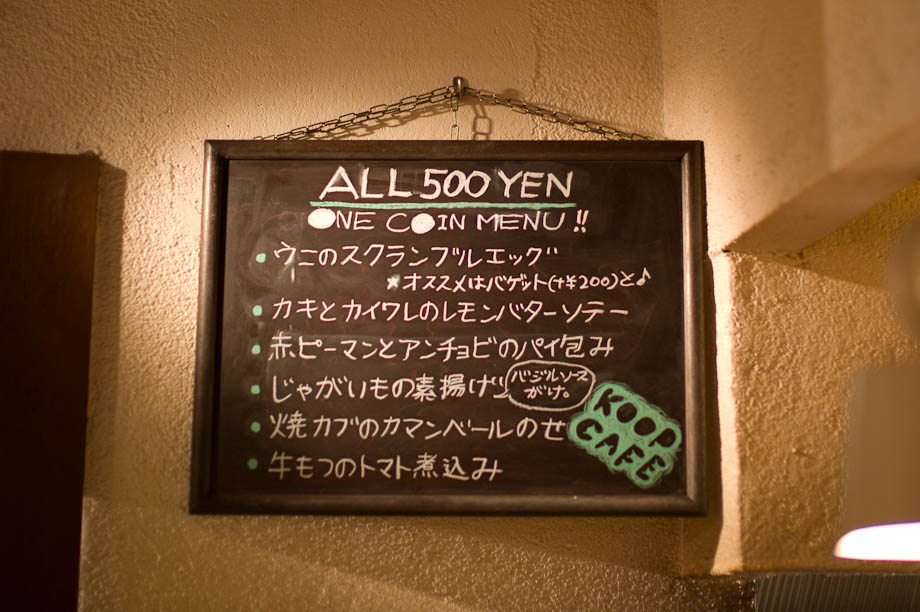 ALL 500 YEN
ONE COIN MENU !!
• ウニのスクランブルエッグ
※オススメはバゲット(+¥200)と♪
• カキとカイワレのレモンバターソテー
• 赤ピーマンとアンチョビのパイ包み
• じゃがいもの素揚げ
バジルソース
がけ。
• 焼カブのカマンベールのせ
• 牛もつのトマト煮込み
KOOP
CAFE